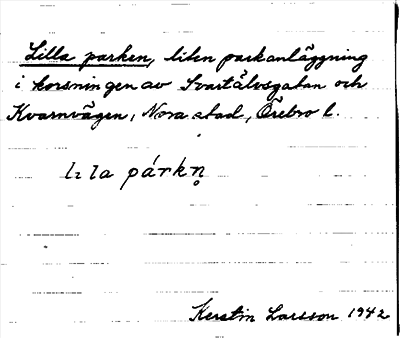 Lilla parken, liten parkanläggning
i korsningen av Svartälvsgatan och
Kvarnvägen, Nora stad, Örebro l.
lɩla párkn̥
Kerstin Larsson 1942